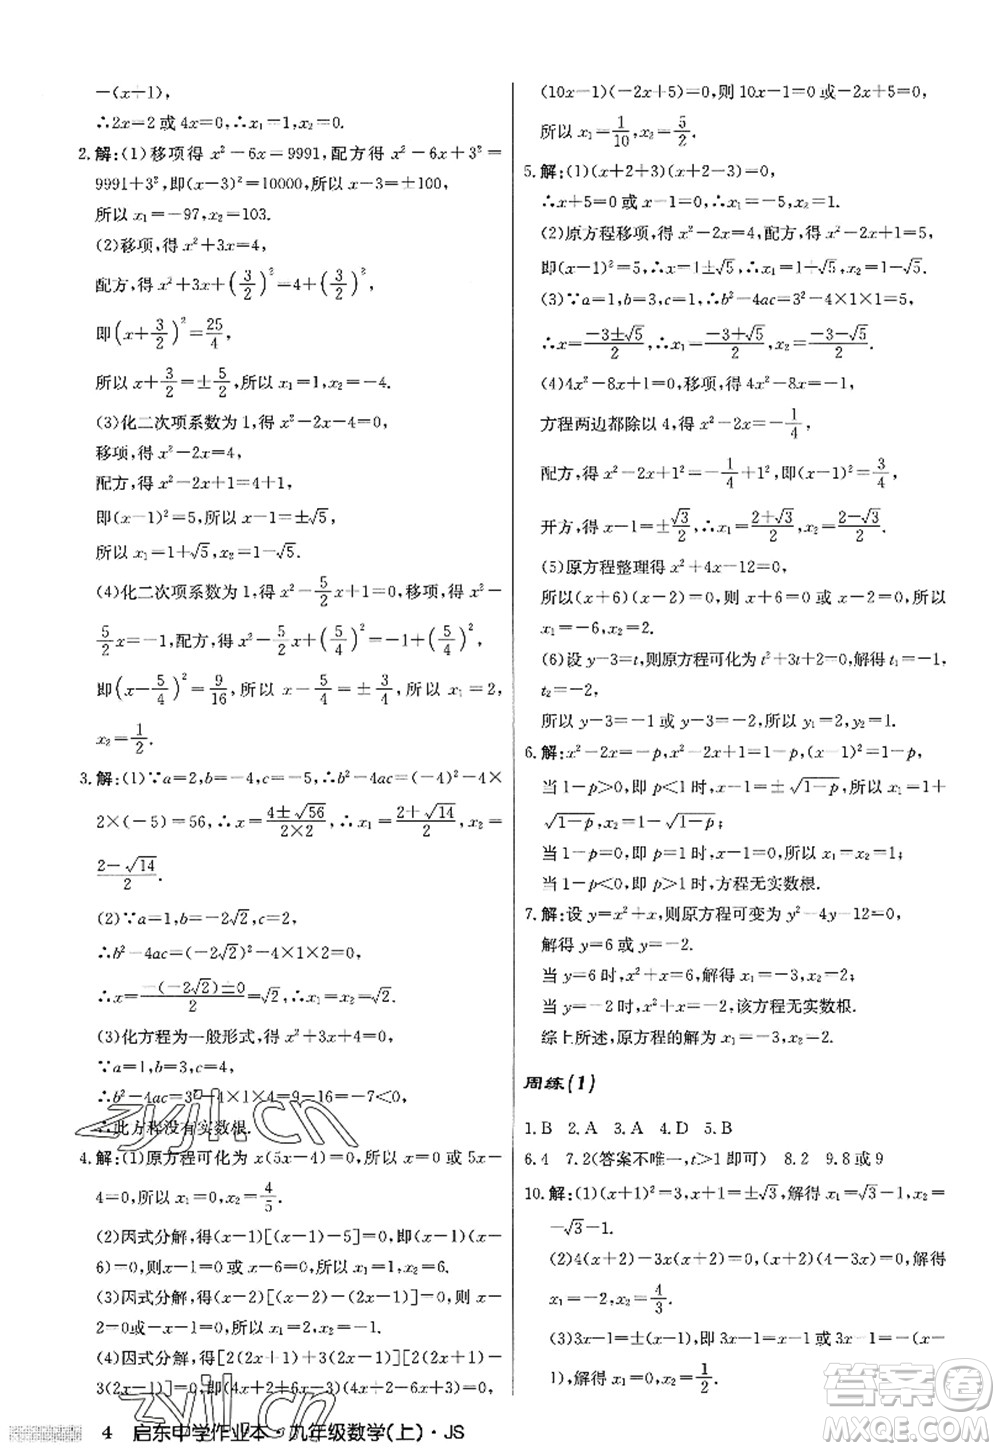 -(x+1),
∴2x=2 或 4x=0,∴x₁=1,x₂=0.
2.解:(1)移项得 x²-6x=9991,配方得 x²-6x+3²=
9991+3²,即(x-3)²=10000,所以 x-3=±100,
所以 x₁=-97,x₂=103.
(2)移项,得 x²+3x=4,
配方,得 x²+3x+(3/2)²=4+(3/2)²,
即(x+3/2)²=25/4,
所以 x+3/2=±5/2,所以 x₁=1,x₂=-4.
(3)化二次项系数为 1,得 x²-2x-4=0,
移项,得 x²-2x=4,
配方,得 x²-2x+1=4+1,
即(x-1)²=5,所以 x-1=±√5,
所以 x₁=1+√5,x₂=1-√5.
(4)化二次项系数为 1,得 x²-5/2x+1=0,移项,得 x²-
5/2x=-1,配方,得 x²-5/2x+(5/4)²=-1+(5/4)²,
即(x-5/4)²=9/16,所以 x-5/4=±3/4,所以 x₁=2,
x₂=1/2.
3.解:(1)∵a=2,b=-4,c=-5,∴b²-4ac=(-4)²-4×
2×(-5)=56,∴x=(4±√56)/(2×2),∴x₁=(2+√14)/2,x₂=
(2-√14)/2.
(2)∵a=1,b=-2√2,c=2,
∴b²-4ac=(-2√2)²-4×1×2=0,
∴x=(-(-2√2)±0)/2=√2,∴x₁=x₂=√2.
(3)化方程为一般形式,得 x²+3x+4=0,
∵a=1,b=3,c=4,
∴b²-4ac=3²-4×1×4=9-16=-7<0,
∴此方程没有实数根.
4.解:(1)原方程可化为 x(5x-4)=0,所以 x=0 或 5x-
4=0,所以 x₁=0,x₂=4/5.
(2)因式分解,得(x-1)[(x-1)-5]=0,即(x-1)(x-
6)=0,所以 x-1=0 或 x-6=0,所以 x₁=1,x₂=6.
(3)因式分解,得(x-2)[(x-2)-(2x-1)]=0,所以 x-
2=0 或-x-1=0,所以 x₁=2,x₂=-1.
(4)因式分解,得[2(2x+1)+3(x-1)][2(2x+1)-
3(x-1)]=0,即(7x-1)(x+5)=0,
(10x-1)(-2x+5)=0,所以 10x-1=0 或-2x+5=0,
所以 x₁=1/10,x₂=5/2.
5.解:(1)(x+2+3)(x+2-3)=0,
∴x+5=0 或 x-1=0,∴x₁=-5,x₂=1.
(2)原方程移项,得 x²-2x=4,配方,得 x²-2x+1=5,
即(x-1)²=5,∴x=1±√5,∴x₁=1+√5,x₂=1-√5.
(3)∵a=1,b=3,c=1,∴b²-4ac=3²-4×1×1=5,
∴x=(-3±√5)/2,∴x₁=(-3+√5)/2,x₂=(-3-√5)/2.
(4)4x²-8x+1=0,移项,得 4x²-8x=-1,
方程两边都除以 4,得 x²-2x=-1/4,
配方,得 x²-2x+1=-1/4+1,即(x-1)²=3/4,
开方,得 x-1=±√3/2,∴x₁=(2+√3)/2,x₂=(2-√3)/2.
(5)原方程整理得 x²+4x-12=0,
所以(x+6)(x-2)=0,所以 x+6=0 或 x-2=0,所以
x₁=-6,x₂=2.
(6)设 y-3=t,则原方程可化为 t²+3t+2=0,解得 t₁=-1,
t₂=-2,
所以 y-3=-1 或 y-3=-2,所以 y₁=2,y₂=1.
6.解:x²-2x=-p,x²-2x+1=1-p,(x-1)²=1-p,
当 1-p>0,即 p<1 时,x-1=±√(1-p),所以 x₁=1+
√(1-p),x₂=1-√(1-p);
当 1-p=0,即 p=1 时,x-1=0,所以 x₁=x₂=1;
当 1-p<0,即 p>1 时,方程无实数根.
7.解:设 y=x²+x,则原方程可变为 y²-4y-12=0,
解得 y=6 或 y=-2.
当 y=6 时,x²+x=6,解得 x₁=-3,x₂=2;
当 y=-2 时,x²+x=-2,该方程无实数根.
综上所述,原方程的解为 x₁=-3,x₂=2.
周练(1)
1.B 2.A 3.A 4.D 5.B
6.4 7.2(答案不唯一,t>1 即可) 8.2 9.8 或 9
10.解:(1)(x+1)²=3,x+1=±√3,解得 x₁=√3-1,x₂=
-√3-1.
(2)4(x+2)-3x(x+2)=0,即(x+2)(4-3x)=0,解得
x₁=-2,x₂=4/3.
(3)3x-1=±(x-1),即 3x-1=x-1 或 3x-1=-x+
1,解得 x₁=0,x₂=1/2.
4 启东中学作业本·九年级数学(上)·JS
zyjl.cn
zyjl.cn
答案圈
MXQE.COM